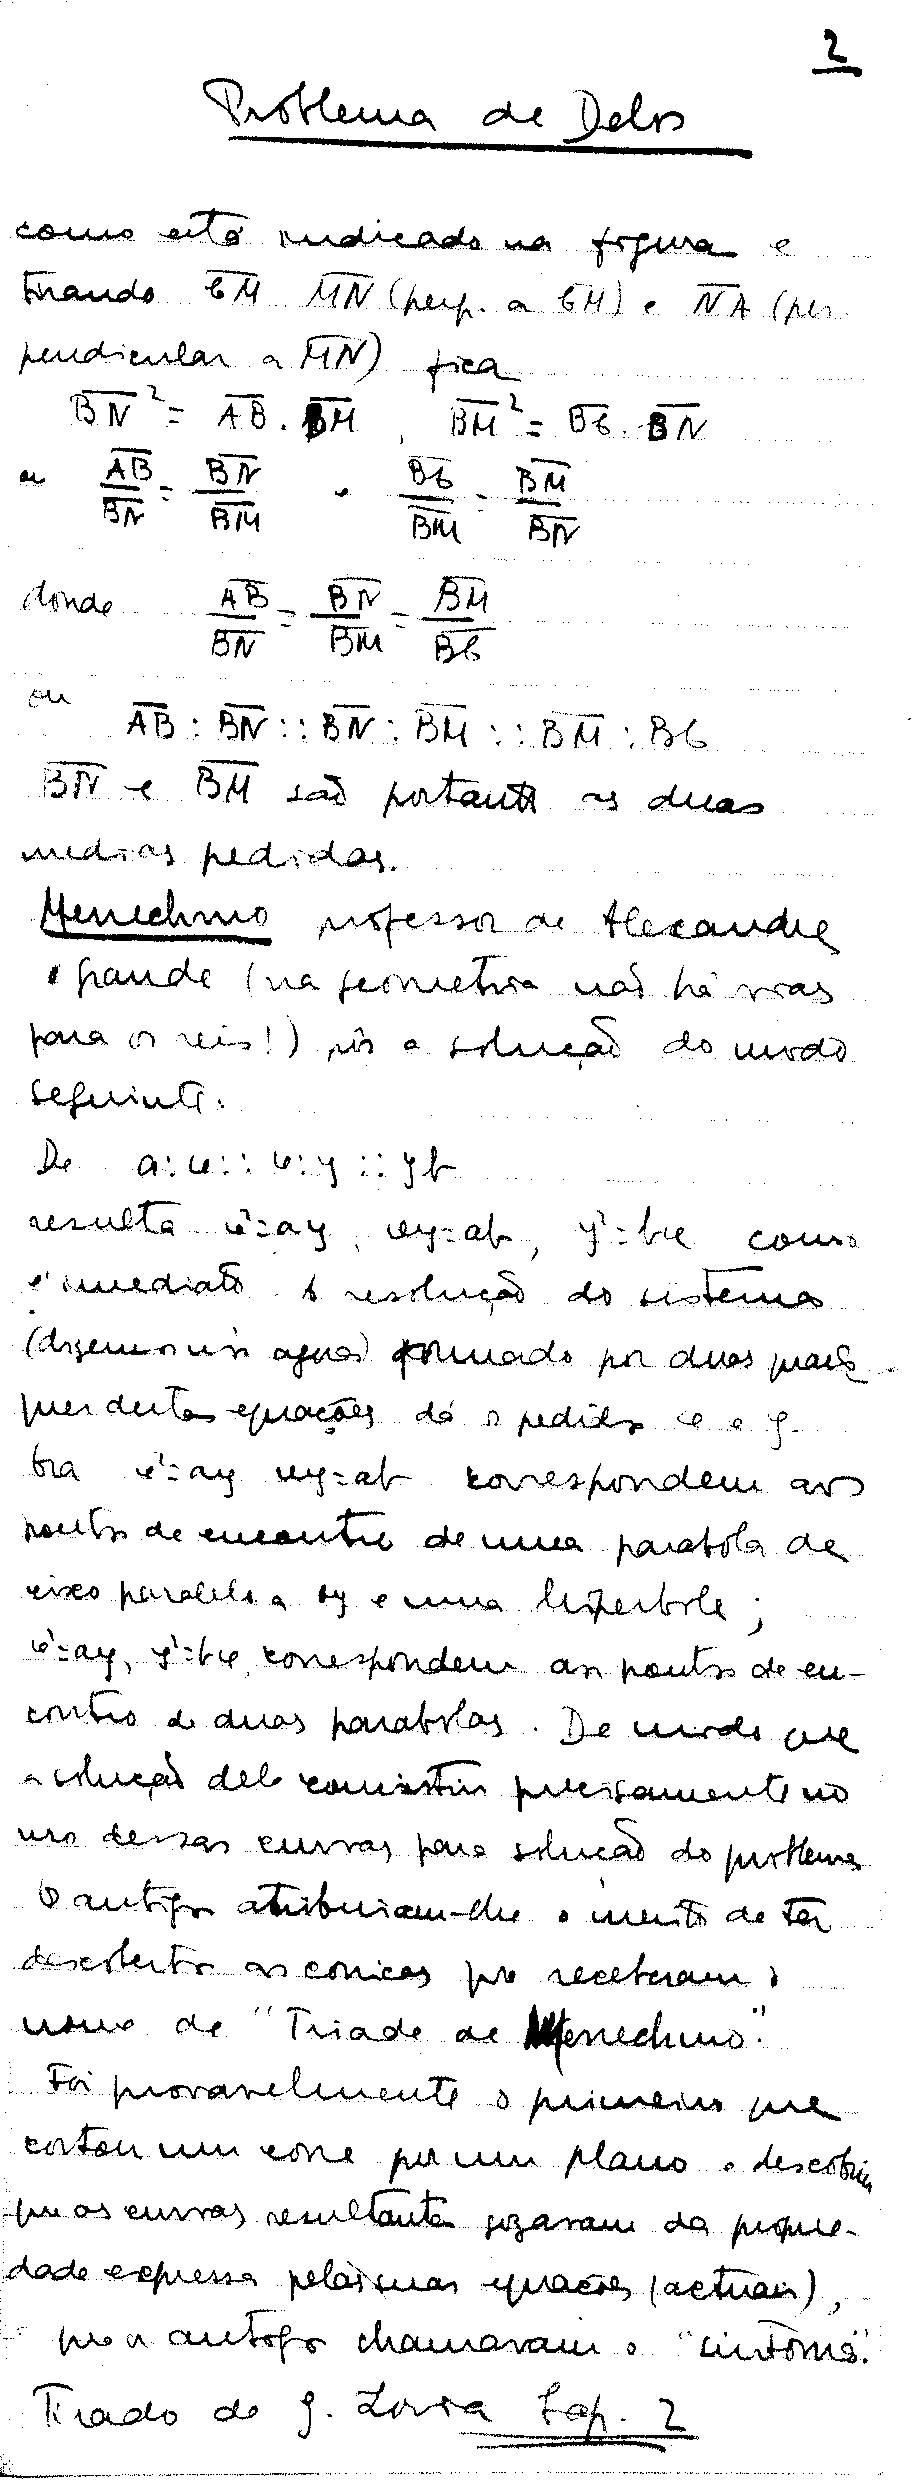 2
Problema de Delos
como está indicado na figura e
tirando C̅M̅ M̅N̅ (perp. a C̅M̅) e N̅A̅ (per
pendicular a M̅N̅) fica
B̅N̅² = A̅B̅ . B̅M̅ , B̅M̅² = B̅C̅ . B̅N̅
ou A̅B̅/B̅N̅ = B̅N̅/B̅M̅ e B̅C̅/B̅M̅ = B̅M̅/B̅N̅
donde A̅B̅/B̅N̅ = B̅N̅/B̅M̅ = B̅M̅/B̅C̅
ou
A̅B̅ : B̅N̅ :: B̅N̅ : B̅M̅ :: B̅M̅ : BC
B̅N̅ e B̅M̅ são portanto as duas
medias pedidas.
Menechmo professor de Alexandre
o grande (na geometria não há vias
para os reis!) pôs a solução do modo
seguinte:
De a:x::x:y::y b
resulta x²=ay, xy=ab, y²=bx como
é imediato A resolução do sistema
(dizemos nós agora) formado por duas quais
quer destas equações dá o pedido x e y.
Ora x²=ay xy=ab correspondem aos
pontos de encontro de uma parabola de
eixo paralelo a oy e uma hiperbole;
x²=ay, y²=bx correspondem aos pontos de en-
contro de duas parabolas. De modo que
a solução dele consistiu precisamente no
uso dessas curvas para solução do problema
Os antigos atribuiam-lhe o merito de ter
descoberto as conicas que receberam o
nome de "Triade de Menechmo".
Foi provavelmente o primeiro que
cortou um cone por um plano e descobriu
que as curvas resultantes gozavam da proprie-
dade expressa pelas suas equações (actuais),
que os antigos chamavam o "sintoma".
Tirado de G. Loria Cap. 2